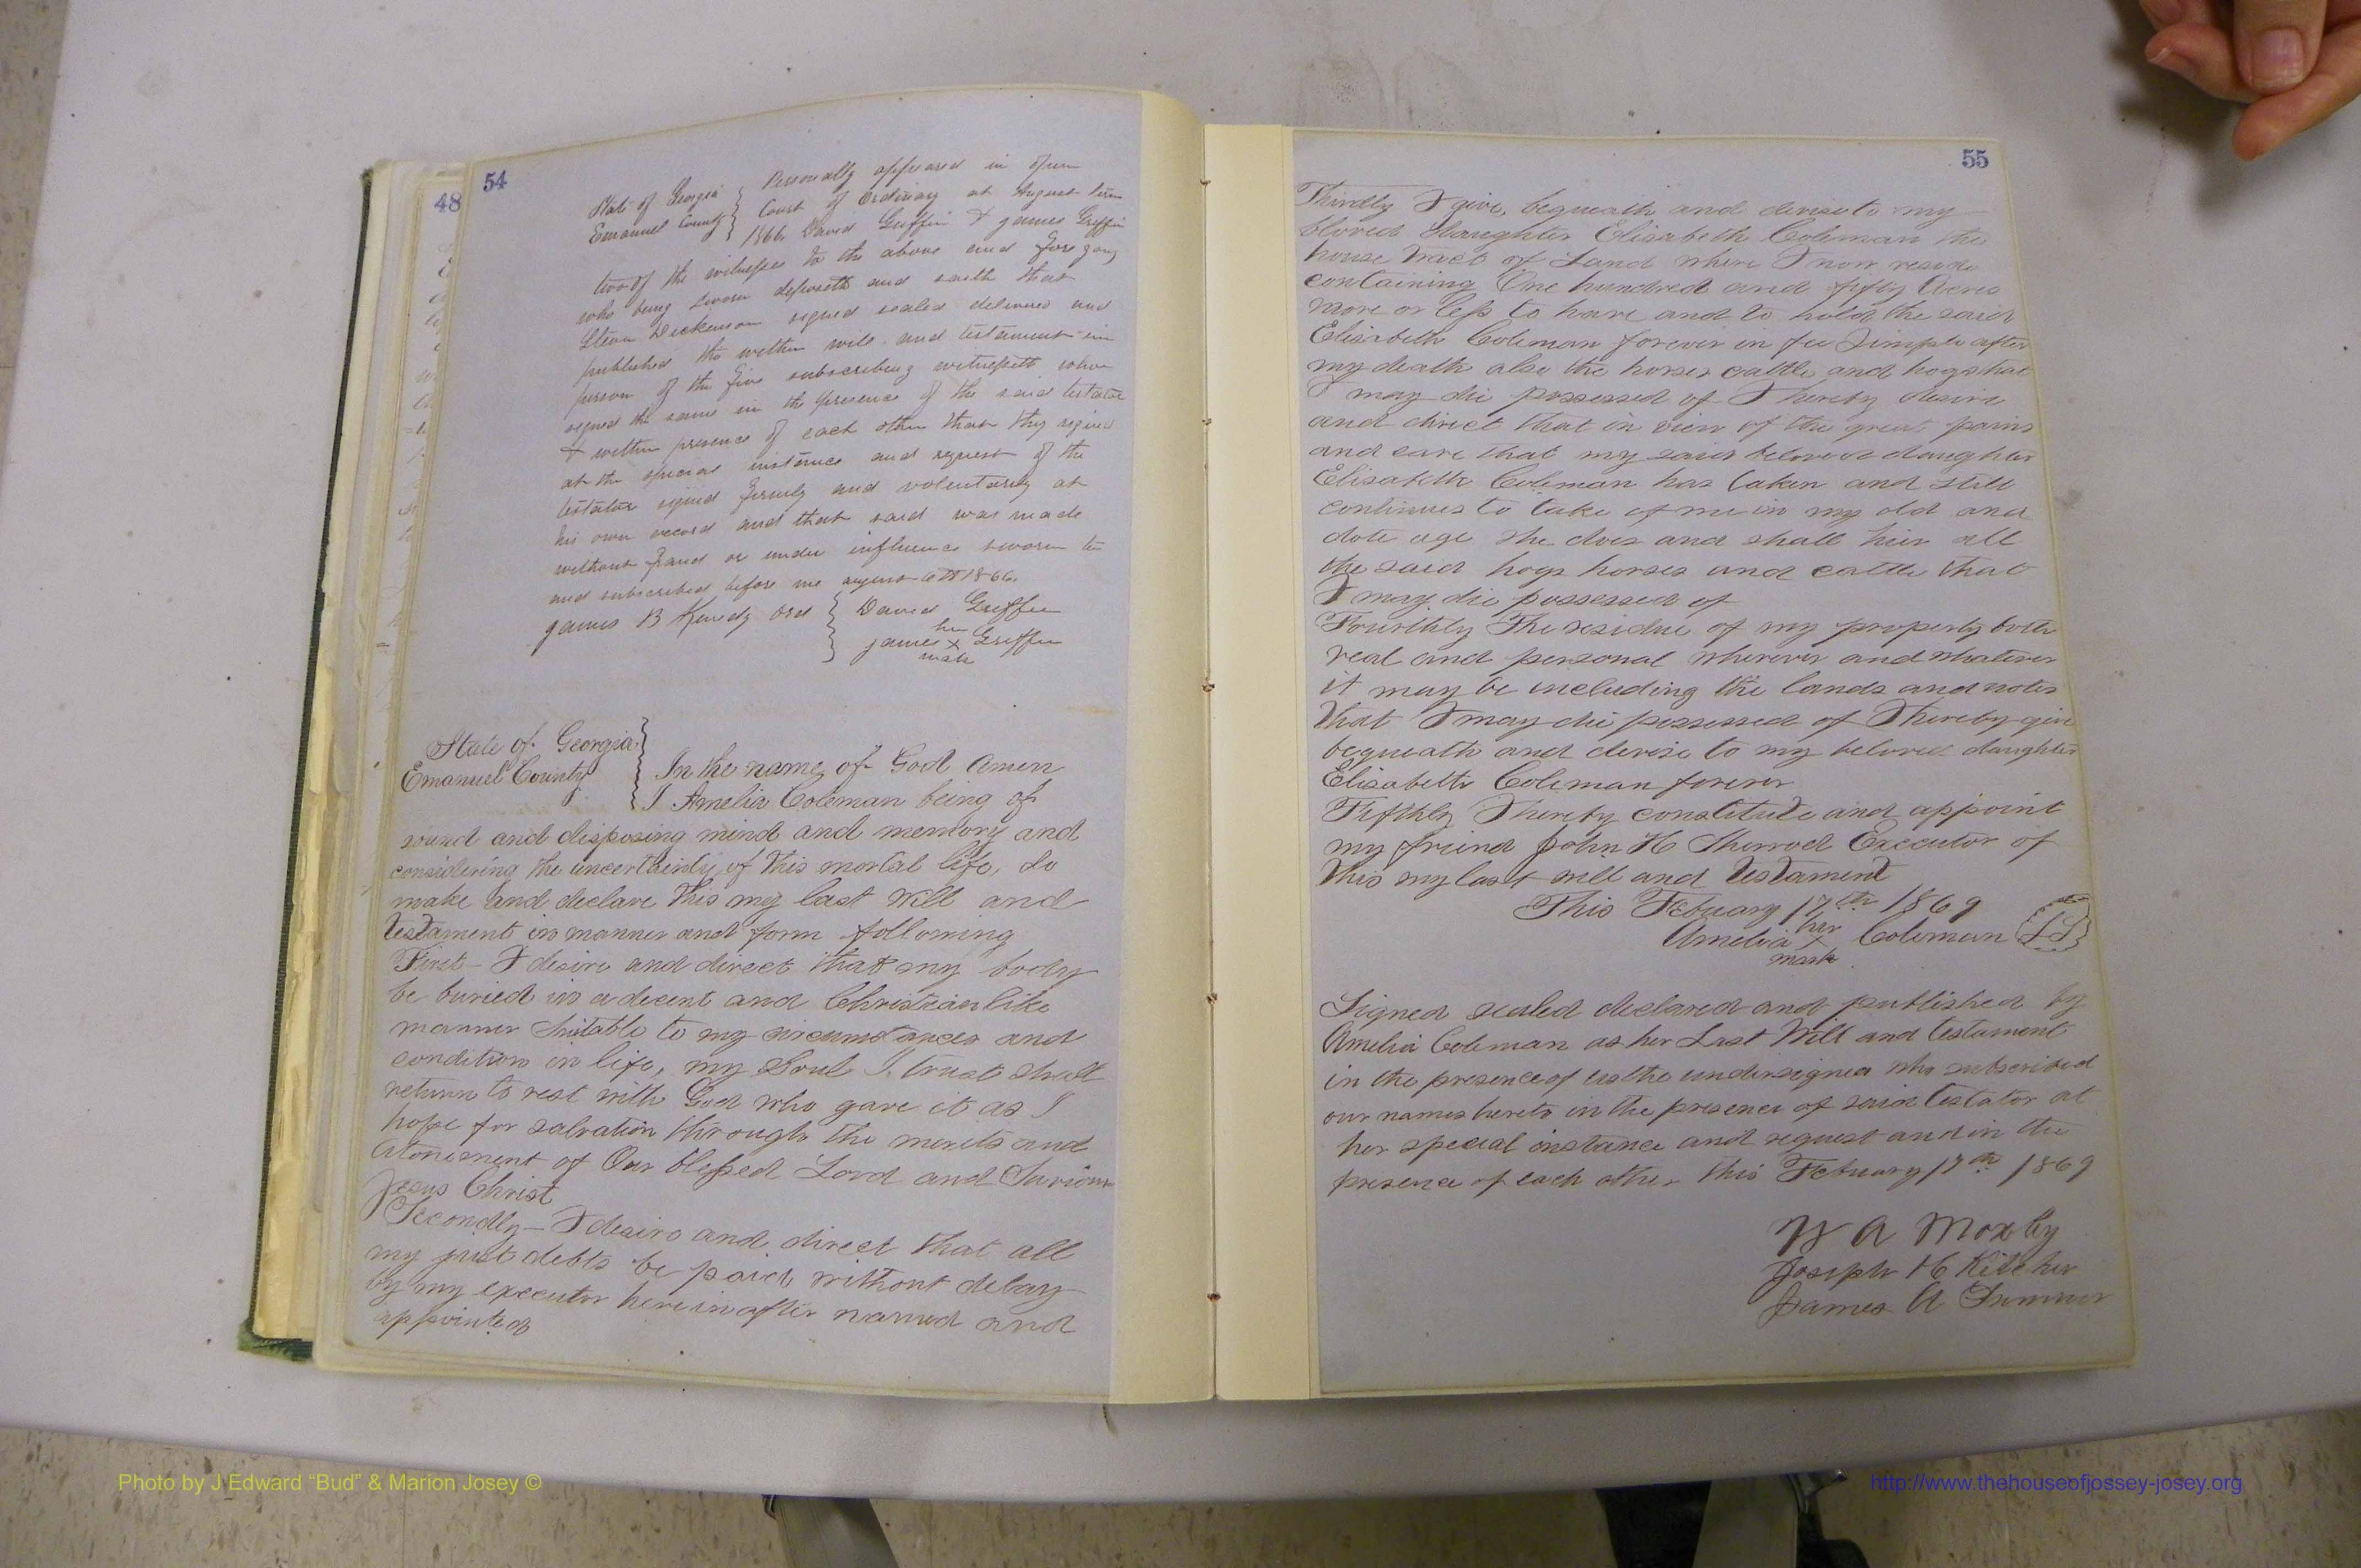 48
54
State of Georgia } Personally appeared in open
Emanuel County } Court of Ordinary at August Term
1866 David Griffin & James Griffin
two of the witnesses to the above and foregoing
who being sworn deposeth and saith that
Dickenson signed sealed delivered and
published the within will and testament in
person of the five subscribing witnesseth whoe
signed the same in the presence of the said testator
& within presence of each other that they signed
at the special instance and request of the
testator signed freely and voluntarily at
his own accord and that said was made
without fraud or under influence sworn to
and subscribed before me august 6th 1866
James B Kenedy Ord } David Griffin
his
James x Griffin
mark
State of Georgia }
Emanuel County } In the name of God Amen
I Amelia Coleman being of
sound and disposing mind and memory and
considering the uncerthinty of this mortal life, do
make and declare this my last Will and
Testament in manner and form following
First - I desire and direct that my body
be buried in a decent and Christian like
manner Suitable to my circumstances and
condition in life, my Soul I trust shall
return to rest with God who gave it as I
hope for salvation through the merits and
Atonement of Our blessed Lord and Saviour
Jesus Christ
Secondly - I desire and direct that all
my just debts be paid without delay
by my executor hereinafter named and
appointed
55
Thirdly I give, bequeath and devise to my
bloved daughter Elisabeth Coleman the
house tract of Land where I now reside
containing One hundred and fifty Acres
more or less to have and to hold the said
Elisabeth Coleman forever in fee Simple after
my death also the horses cattle and hogs that
I may die possessed of I hereby desire
and direct that in view of the great pains
and care that my said beloved daughter
Elisabeth Coleman has taken and still
continues to take of me in my old and
dote age she does and shall hier all
the said hogs horses and cattle that
I may die possessed of
Fourthly The residue of my property both
real and personal wherever and whatever
it may be including the lands and notes
that I may die possessed of I hereby give
bequeath and devise to my beloved daughter
Elisabeth Coleman forever
Fifthly I hereby constitute and appoint
my friend John H Sherrod Executor of
this my last will and Testament
This Febuary 17th 1869
her
Amelia x Coleman LS
mark
Signed sealed declared and published by
Amelia Coleman as her Last Will and testament
in the presence of us the undersigned who subscribed
our names hereto in the presence of said testator at
her special instance and request and in the
presence of each other this Febuary 17th 1869
W A Moxley
Joseph H Kitcher
James A Sumner
Photo by J Edward “Bud” & Marion Josey ©
http://www.thehouseofjossey-josey.org